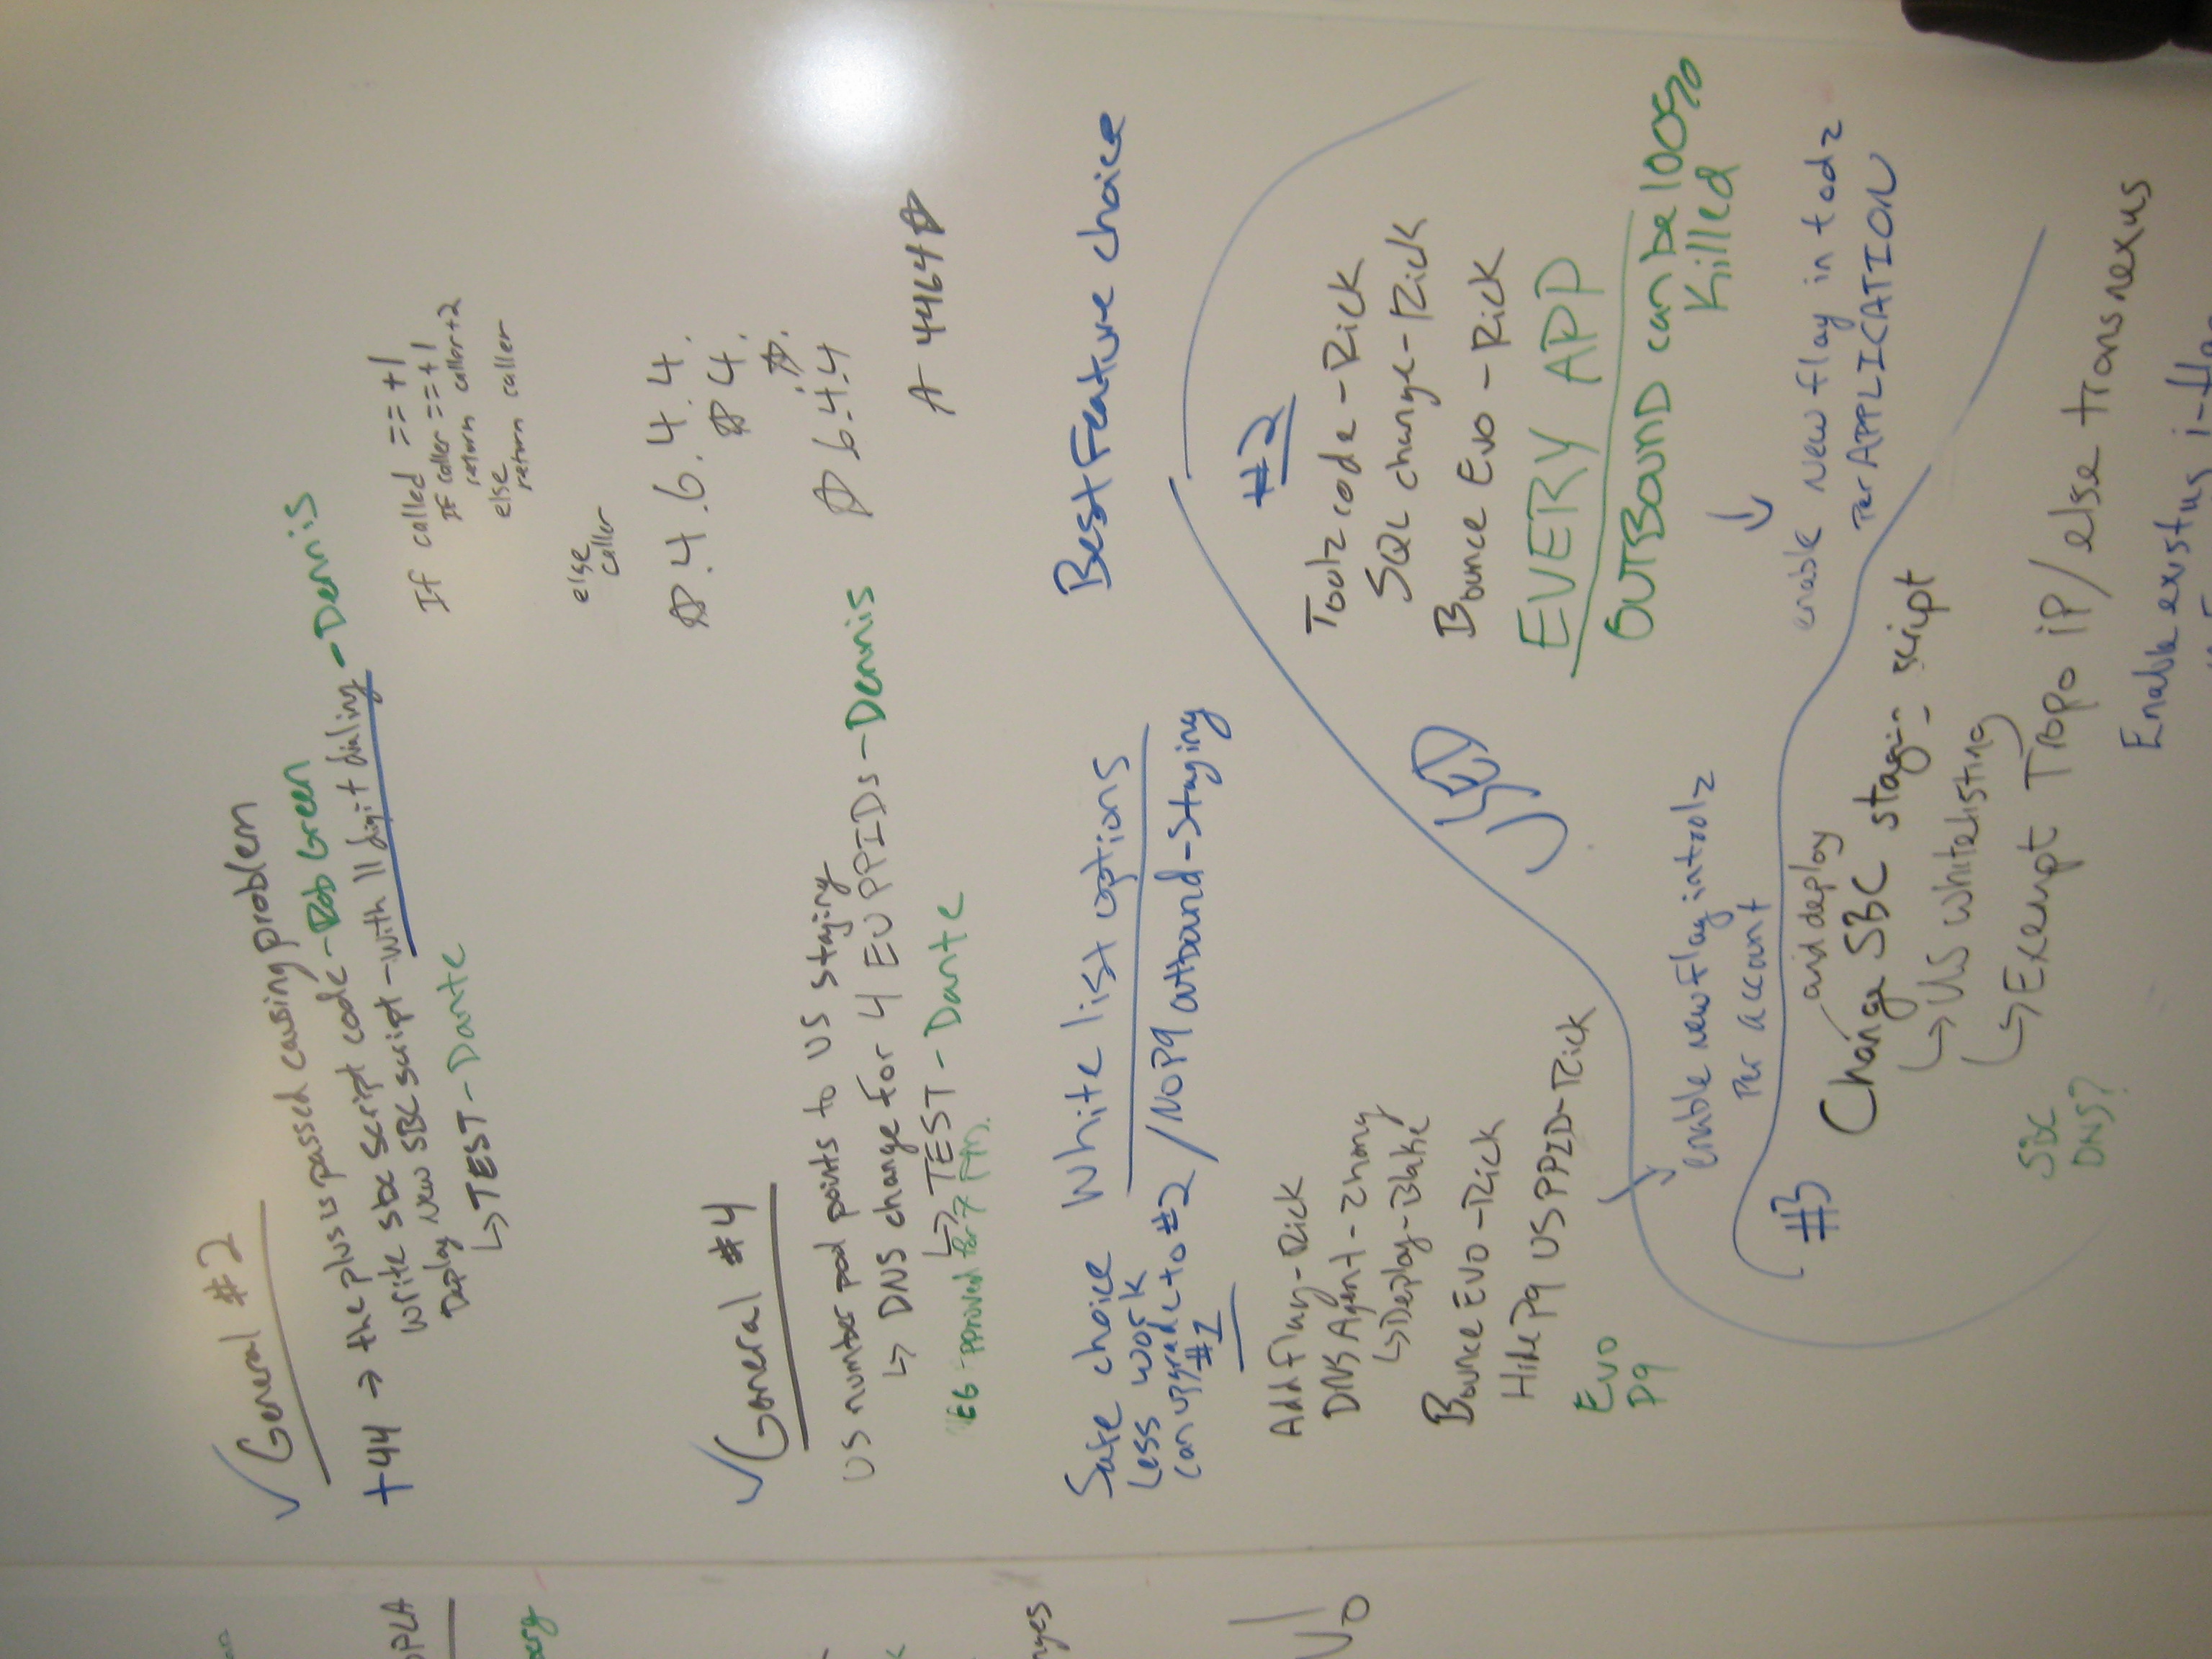 General #2
+44 → the plus is passed causing problem
Write sbc script code - Rob Green
Deploy New SBC script - with 11 digit dialing - Dennis
↳ TEST - Dante
If called == +1
IF caller == +1
return caller+2
else
return caller
else
caller
.4.6.4.4.
4.
6.4.4
A - 4464
General #4
US number pool points to US staging
↳ DNS change for 4 EU PPIDs - Dennis
↳ TEST - Dante
approved for 7 PM.
White list options
Safe choice
Less work
can upgrade to #2 / No P9 outbound-staging
#1
Add flag - Rick
DNS Agent - Zhang
↳ Deploy - Blake
Bounce Evo - Rick
Hide P9 US PPID - Rick
Evo
P9
enable new flag in toolz
Per account
Best Feature choice
#2
Toolz code - Rick
SQL change - Rick
Bounce Evo - Rick
EVERY APP
OUTBOUND can be 100%
Killed
enable new flag in toolz
Per APPLICATION
#3
and deploy
Change SBC staging script
↳ US whitelisting
↳ Exempt Tropo iP / else transnexus
SBC
DNS?
Enable